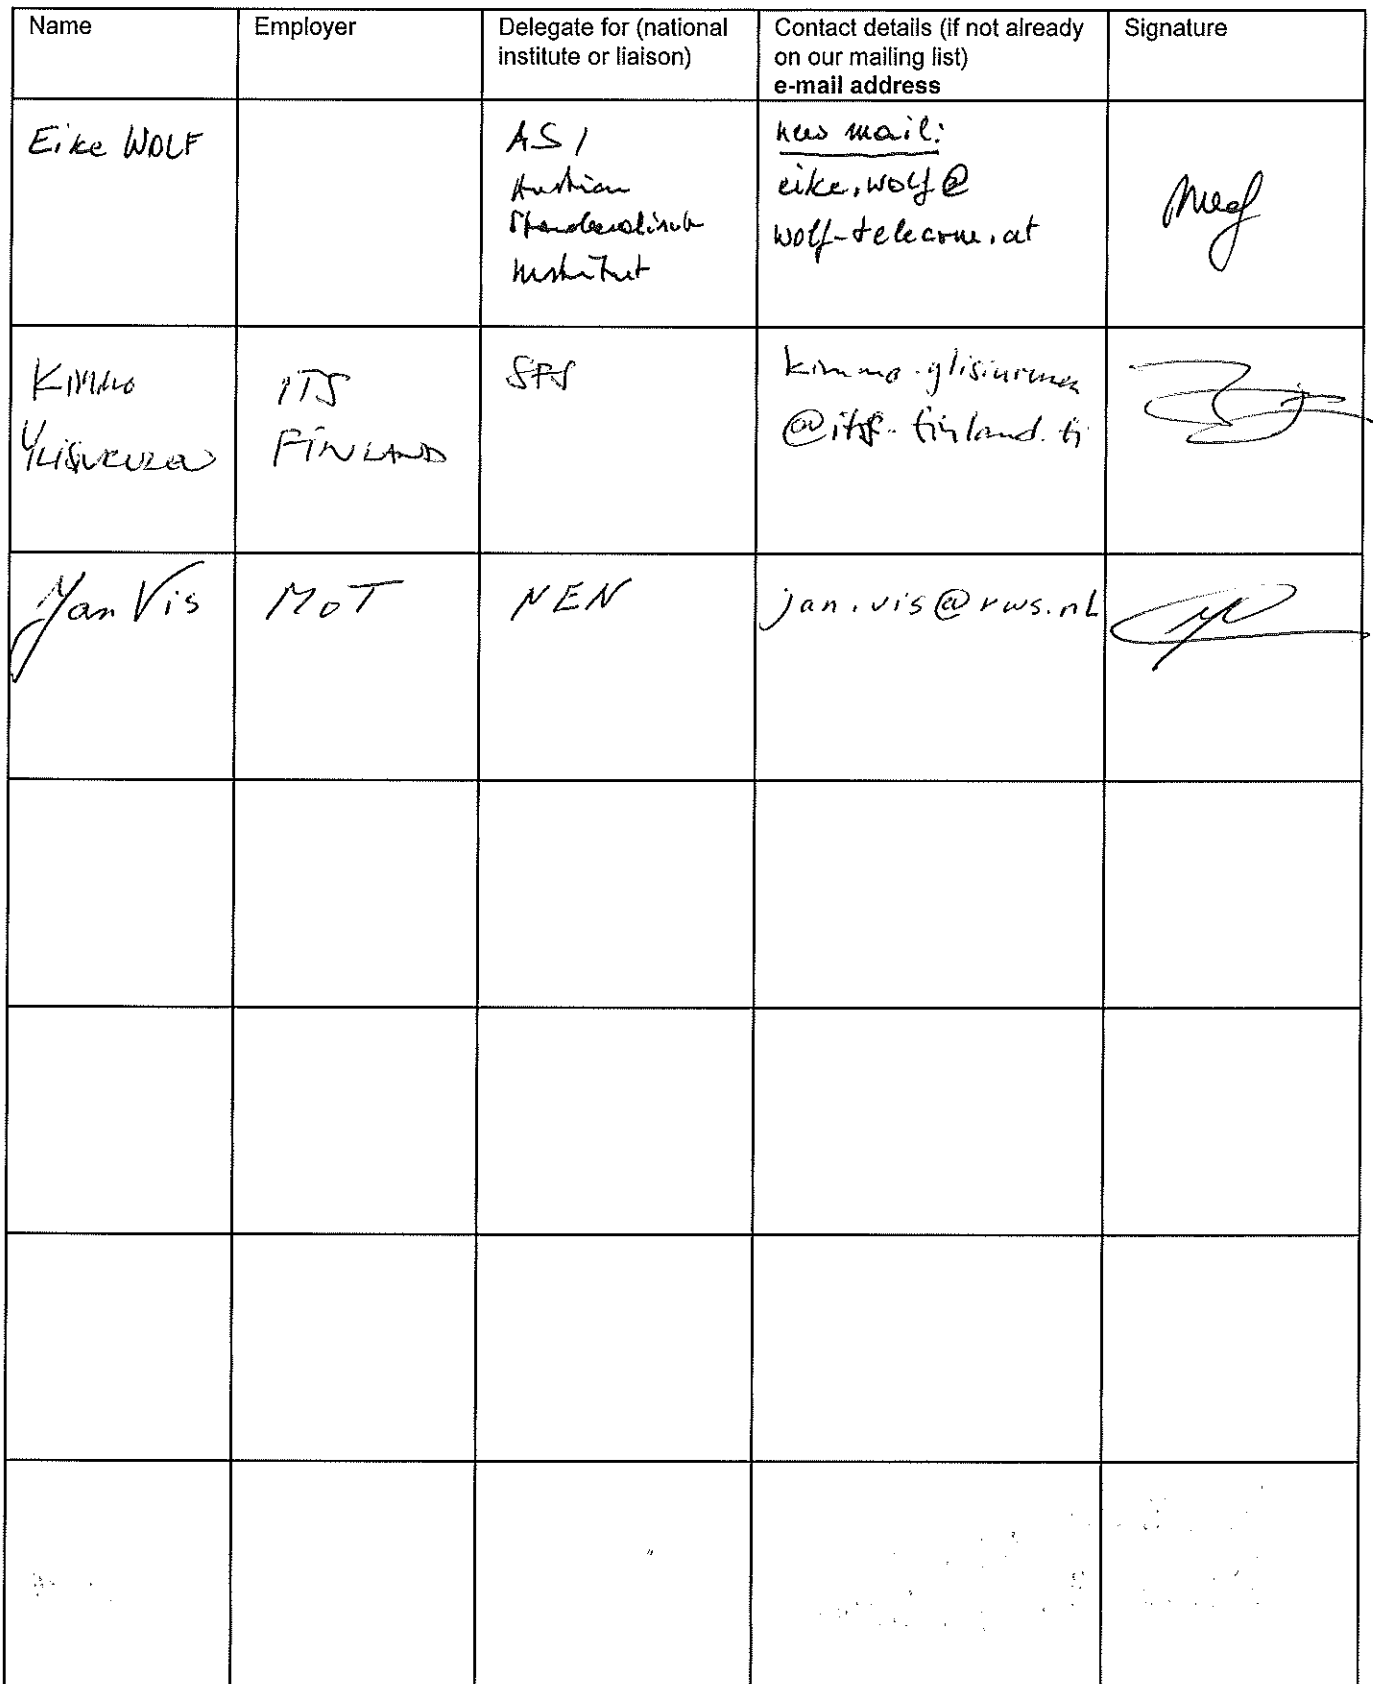 Name
Employer
Delegate for (national
institute or liaison)
Contact details (if not already
on our mailing list)
e-mail address
Signature
Eike WOLF
ASI
Austrian
Institut
new mail:
eike.wolf@
wolf-telecom.at
Kimmo
ITS
FINLAND
SFS
kimmo.ylisiurunen
@its-finland.fi
Jan Vis
MoT
NEN
jan.vis@rws.nl